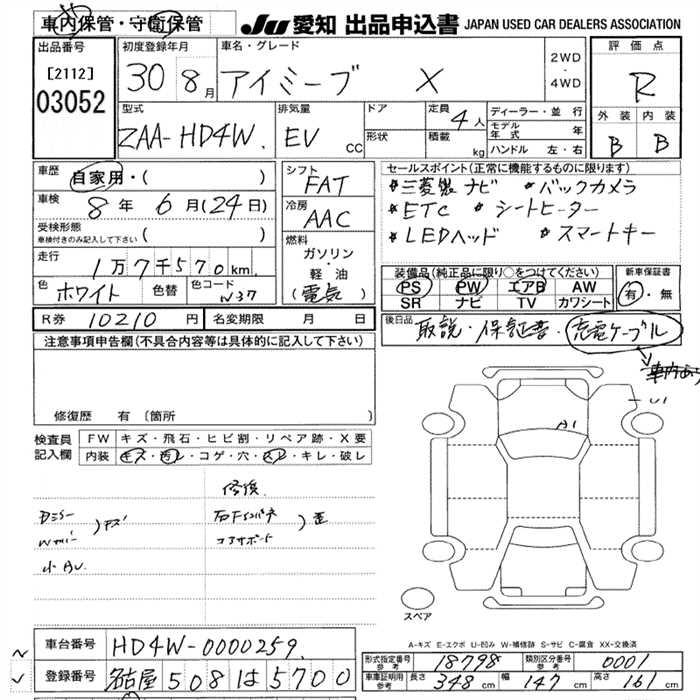 車内保管・守衛保管
JU 愛知 出品申込書 JAPAN USED CAR DEALERS ASSOCIATION
出品番号
[2112]
03052
初度登録年月
30 8月
車名・グレード
アイミーブ X
2WD
・
4WD
評価点
R
外装 内装
B B
型式
ZAA-HD4W
排気量
EV cc
ドア
形状
定員 4人
積載 kg
ディーラー・並行
モデル年式 年
ハンドル 左・右
車歴
自家用・( )
車検
8年 6月(24日)
受検形態
車検付きのみ記入して下さい ( )
走行
1万7千570km
色 ホワイト 色替 色コード W37
シフト
FAT
冷房
AAC
燃料
ガソリン
・
軽・油
(電気)
セールスポイント(正常に機能するものに限ります)
*三菱製ナビ *バックカメラ
*ETC *シートヒーター
*LEDヘッド *スマートキー
装備品(純正品に限り○をつけてください)
PS PW エアB AW
SR ナビ TV カワシート
新車保証書
有・無
R券 10210円
名変期限 月 日
後日品
取説・保証書・充電ケーブル
車内あり
注意事項申告欄(不具合内容等は具体的に記入して下さい)
修復歴 有 〔箇所
検査員記入欄
FW キズ・飛石・ヒビ割・リペア跡・X要
内装 キズ・汚レ・コゲ・穴・スレ・キレ・破レ
修復
右Fインパネ
コアサポート
)歪
)キズ
小AU
A1
スペア
A-キズ E-エクボ U-凹み W-補修跡 S-サビ C-腐食 XX-交換済
車台番号 HD4W-0000259
登録番号 名古屋 508 は 5700
形式指定番号 参考 18798
類別区分番号 参考 0001
車庫証明用 参考 長さ 348cm 幅 147cm 高さ 161cm